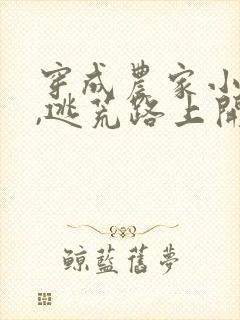 穿成農家小
,逃荒路上開
鯨藍舊夢